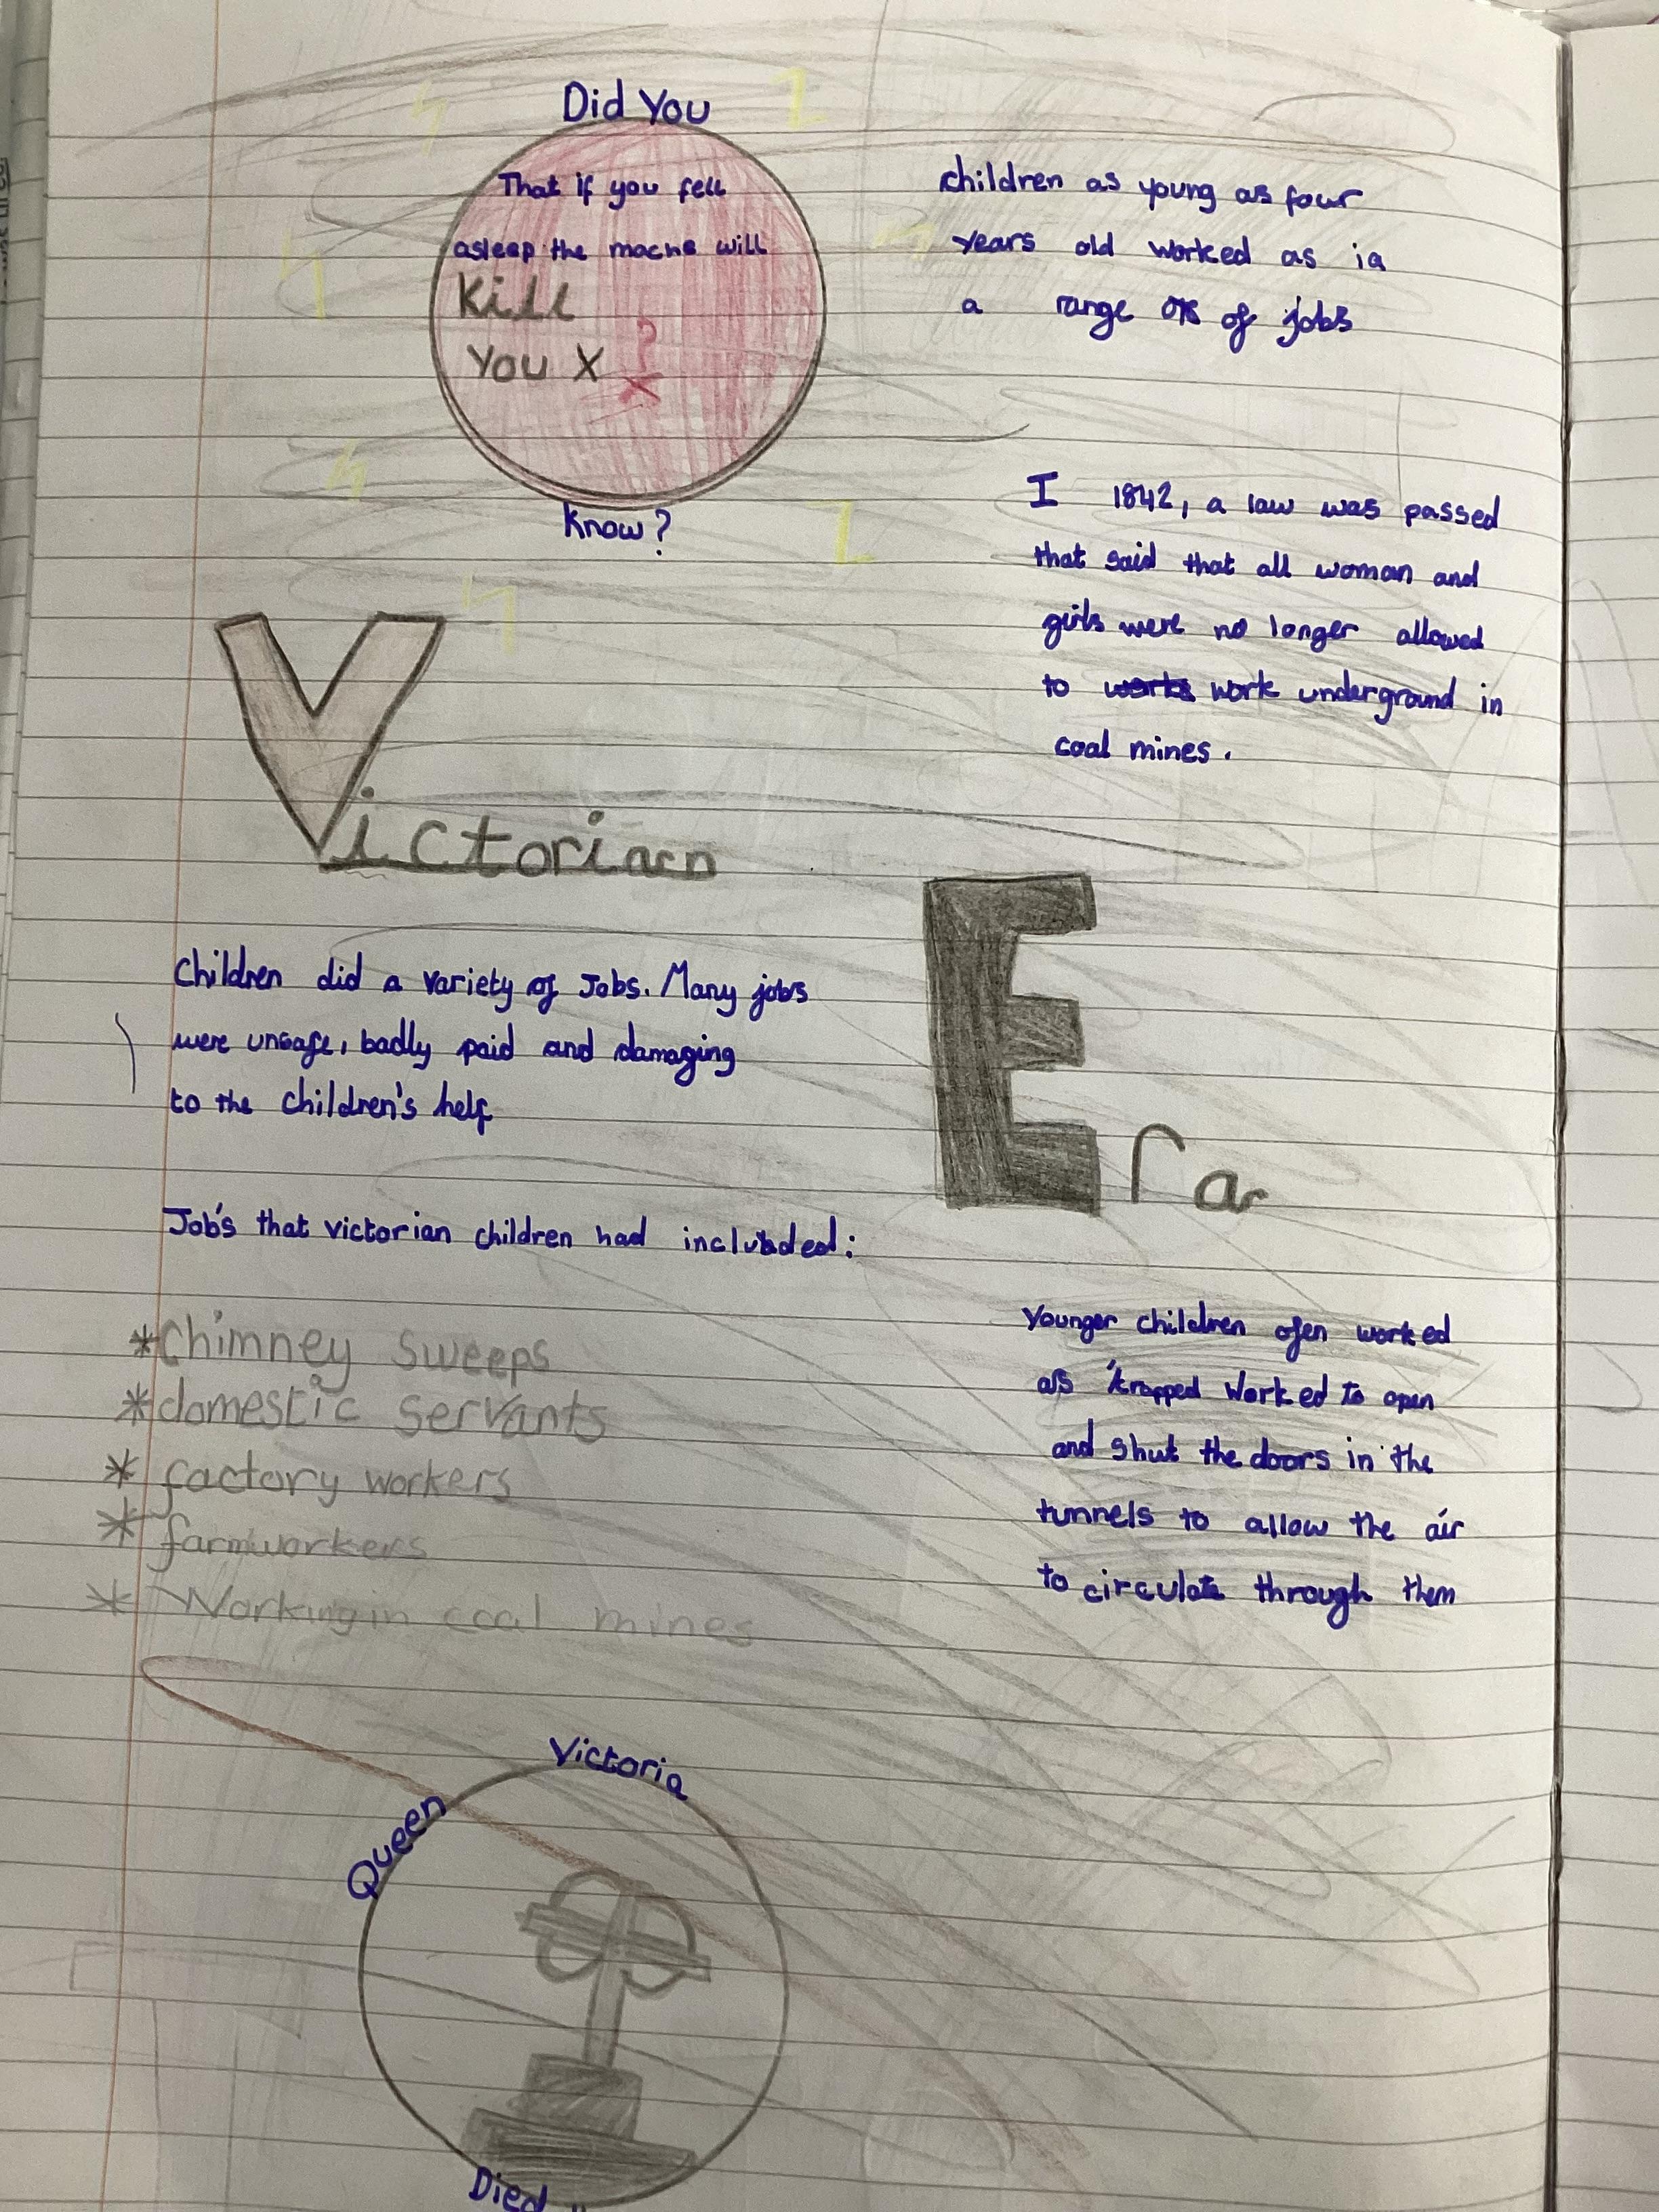 Did You
That if you fell
asleep the machs will
Kill
You X ?
Know?
children as young as four
years old worked as ia
a range of jobs
I 1842, a law was passed
that said that all woman and
girls were no longer allowed
to works work underground in
coal mines.
Victorian
Era
Children did a variety of Jobs. Many jobs
were unsafe, badly paid and damaging
to the children's help
Job's that victorian children had included:
*Chimney sweeps
*domestic servants
* factory workers
* farmworkers
* Working in coal mines
Younger children ofen worked
as 'trapped worked to open
and shut the doors in the
tunnels to allow the air
to circulate through them
Queen Victoria
Died